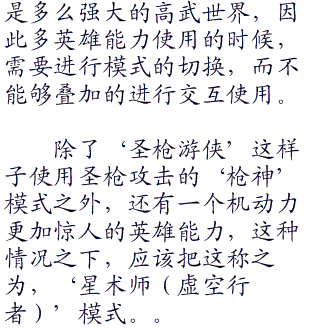 是多么强大的高武世界，因
此多英雄能力使用的时候，
需要进行模式的切换，而不
能够叠加的进行交互使用。
除了‘圣枪游侠’这样
子使用圣枪攻击的‘枪神’
模式之外，还有一个机动力
更加惊人的英雄能力，这种
情况之下，应该把这称之
为，‘星术师（虚空行
者）’模式。。